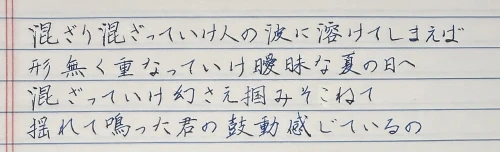 混ざり混ざっていけ人の波に溶けてしまえば
形無く重なっていけ曖昧な夏の日へ
混ざっていけ幻さえ掴みそこねて
揺れて鳴った君の鼓動感じているの